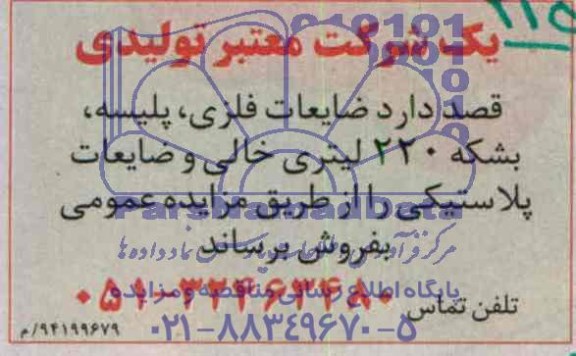 ۲۱۵
یک شرکت معتبر تولیدی
قصد دارد ضایعات فلزی، پلیسه،
بشکه ۲۲۰ لیتری خالی و ضایعات
پلاستیکی را از طریق مزایده عمومی
بفروش برساند
تلفن تماس
پایگاه اطلاع رسانی مناقصه و مزایده
۰۲۱-۸۸۳۴۹۶۷۰-۵
۹۴۱۹۹۶۷۹/م